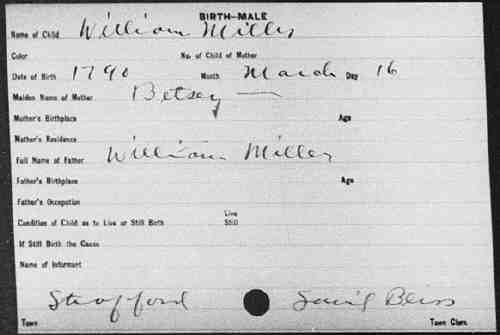 BIRTH—MALE
Name of Child William Miller
Color No. of Child of Mother
Date of Birth 1790 Month March Day 16
Maiden Name of Mother Betsey —
Mother's Birthplace Age
Mother's Residence
Full Name of Father William Miller
Father's Birthplace Age
Father's Occupation
Condition of Child as to Live or Still Birth Live Still
If Still Birth the Cause
Name of Informant
Strafford Bliss
Town Town Clerk